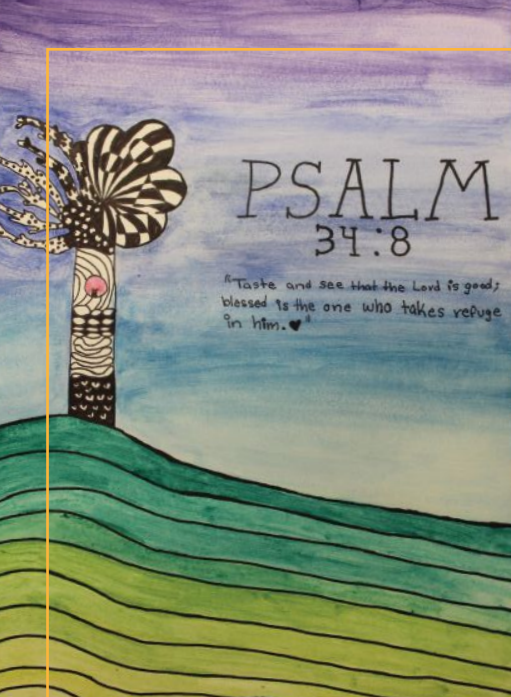 PSALM
34:8
"Taste and see that the Lord is good;
blessed is the one who takes refuge
in him.♥"